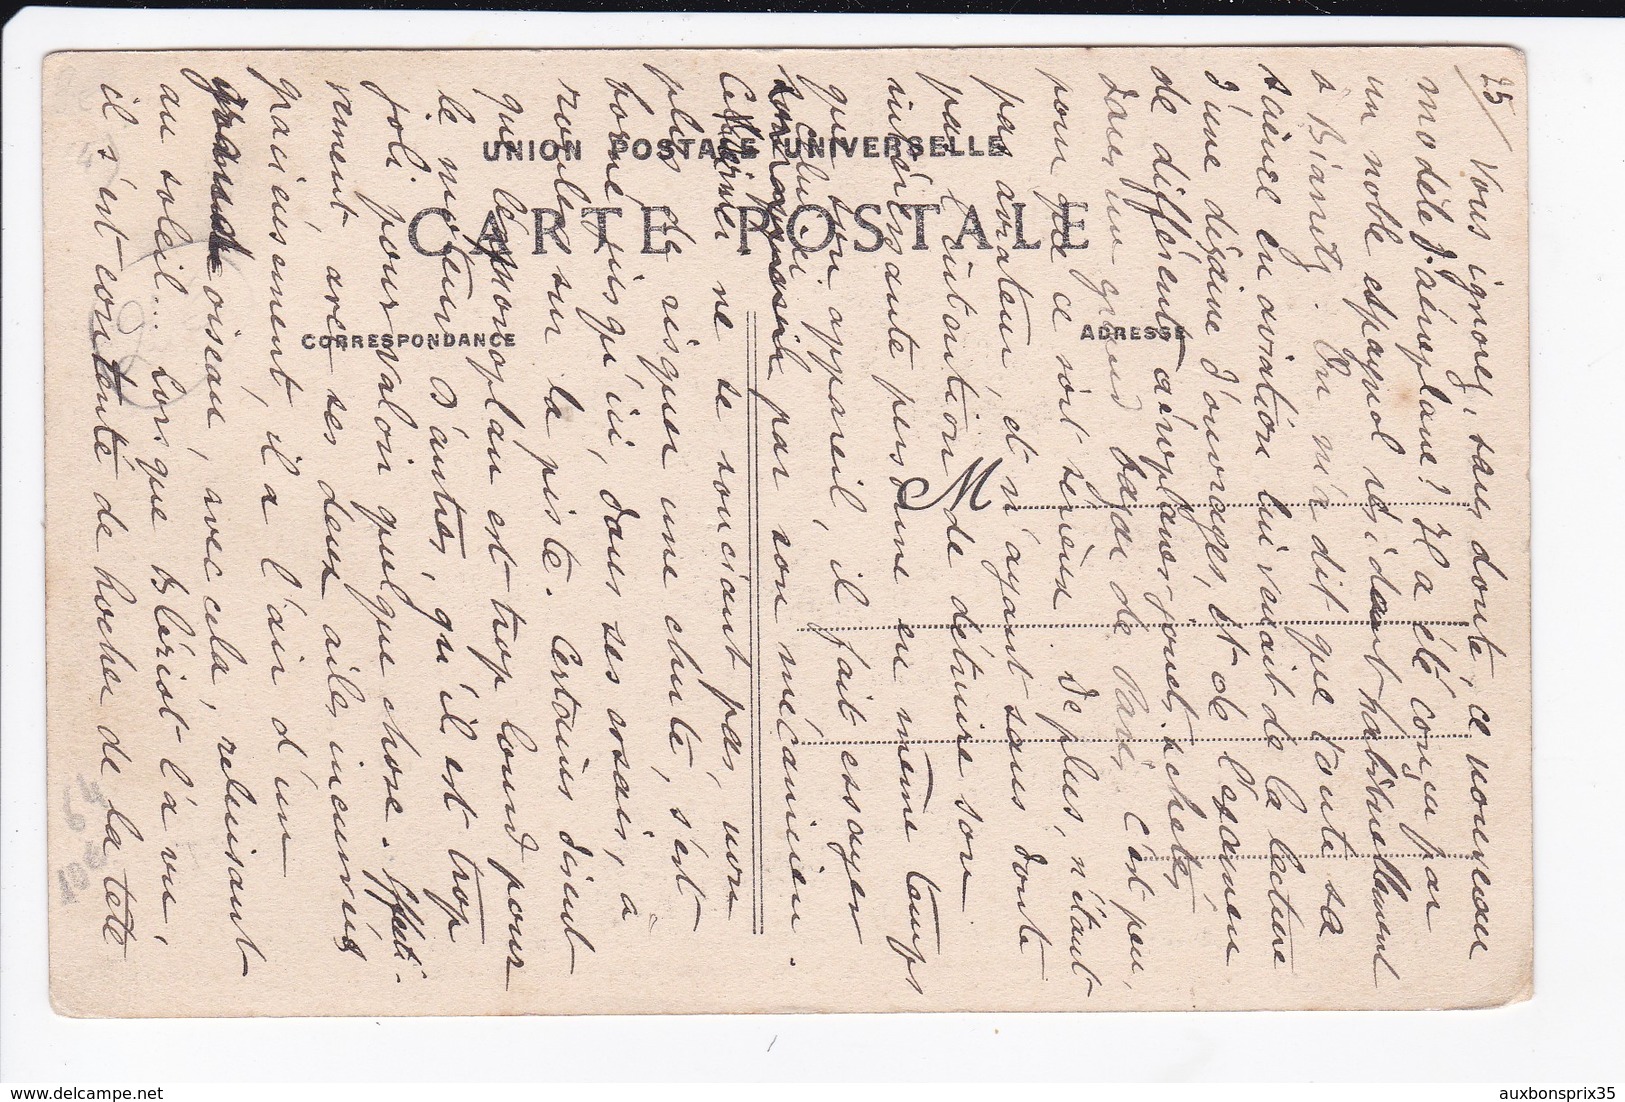 25/ Vous ignorez, sans doute, ce nouveau
modèle d'aéroplane? Il a été conçu par
un noble espagnol résidant habituellement
à Biarritz. On m'a dit que toute sa
science en aviation lui venait de la lecture
d'une dizaine d'ouvrages, et de l'examen
de différents aéroplanes-jouets achetés
dans un grand bazar de Paris, c'est peu,
pour que ce soit sérieux. De plus, n'étant
pas aviateur, et n'ayant sans doute
pas l'intention de détruire son
intéressante personne en même temps
que son appareil, il fait essayer
celui-ci
par son mécanicien.
Ce dernier ne se souciant pas, non
plus de risquer une chute, s'est
borné jusqu'ici, dans ses essais, à
rouler sur la piste. Certains disent
que l'aéroplan est trop lourd pour
le moteur. D'autres, qu'il est trop
joli pour valoir quelque chose. Effecti-
vement avec ses deux ailes incurvées
gracieusement, il a l'air d'un
grand oiseau, avec cela, reluisant
au soleil... Lorsque Blériot l'a vu,
il s'est contenté de hocher de la tête
UNION POSTALE UNIVERSELLE
CARTE POSTALE
CORRESPONDANCE
ADRESSE
M
auxbonsprix35